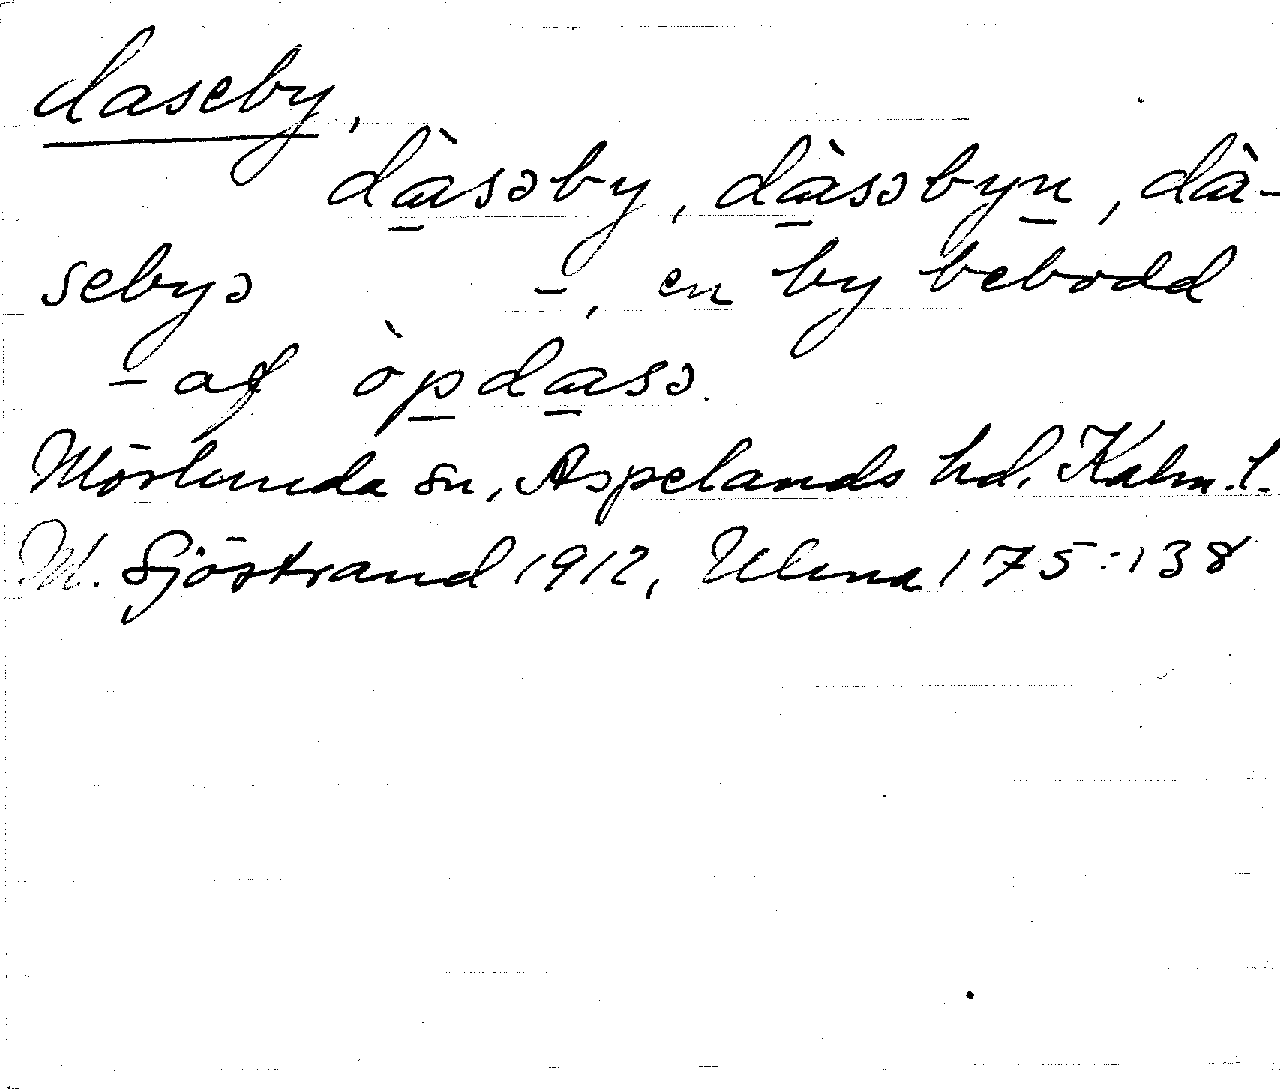 daseby,
dàsəby, dàsəbyn, dà-
sebyə –, en by bebodd
– af òpdasə.
Mörlunda sn, Aspelands hd. Kalm. l.
M. Sjöstrand 1912, Ulma 175:138